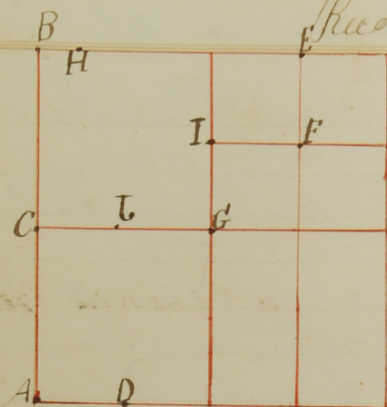 B H E
I F
C J G
A D